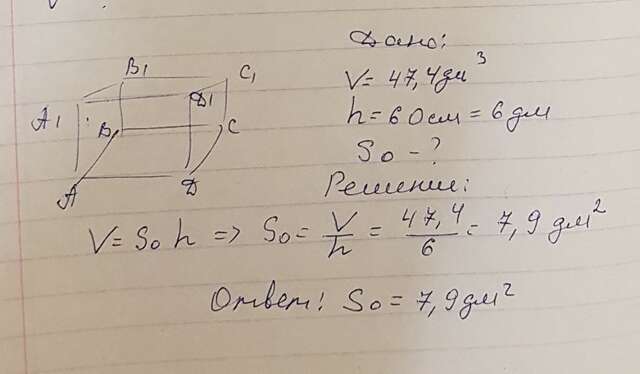 B1
C1
A1
D1
B
C
A
D
Дано:
V = 47,4 дм³
h = 60 см = 6 дм
So - ?
Решение:
V = So h => So = V/h = 47,4/6 = 7,9 дм²
Ответ: So = 7,9 дм²